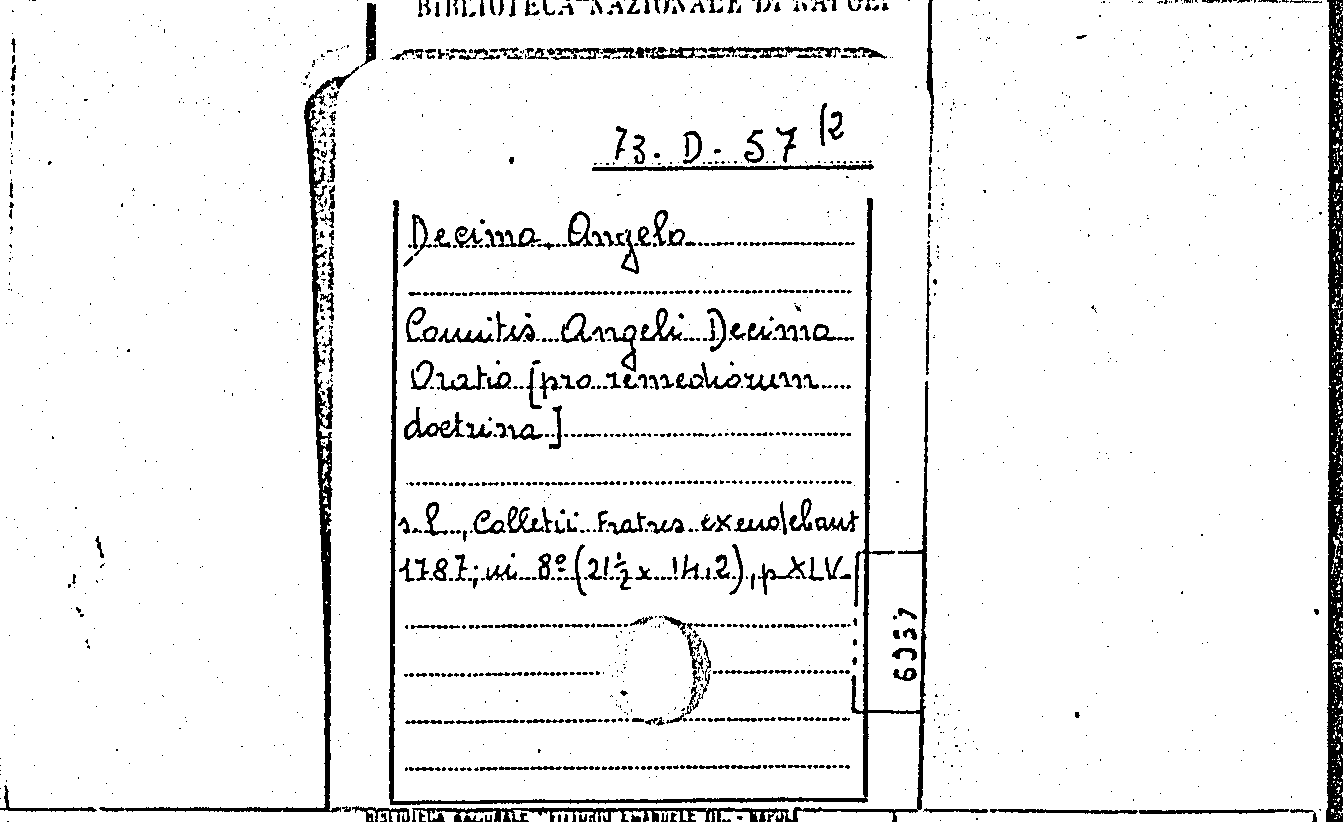 BIBLIOTECA NAZIONALE DI NAPOLI
73. D. 57 (2
Decima, Angelo
Comitis Angeli Decima
Oratio [pro remediorum
doctrina]
s. l., Colletii Fratres excudebant
1787; in 8º (21½ x 14,2), p XLV
6957
BIBLIOTECA NAZIONALE "VITTORIO EMANUELE III" - NAPOLI